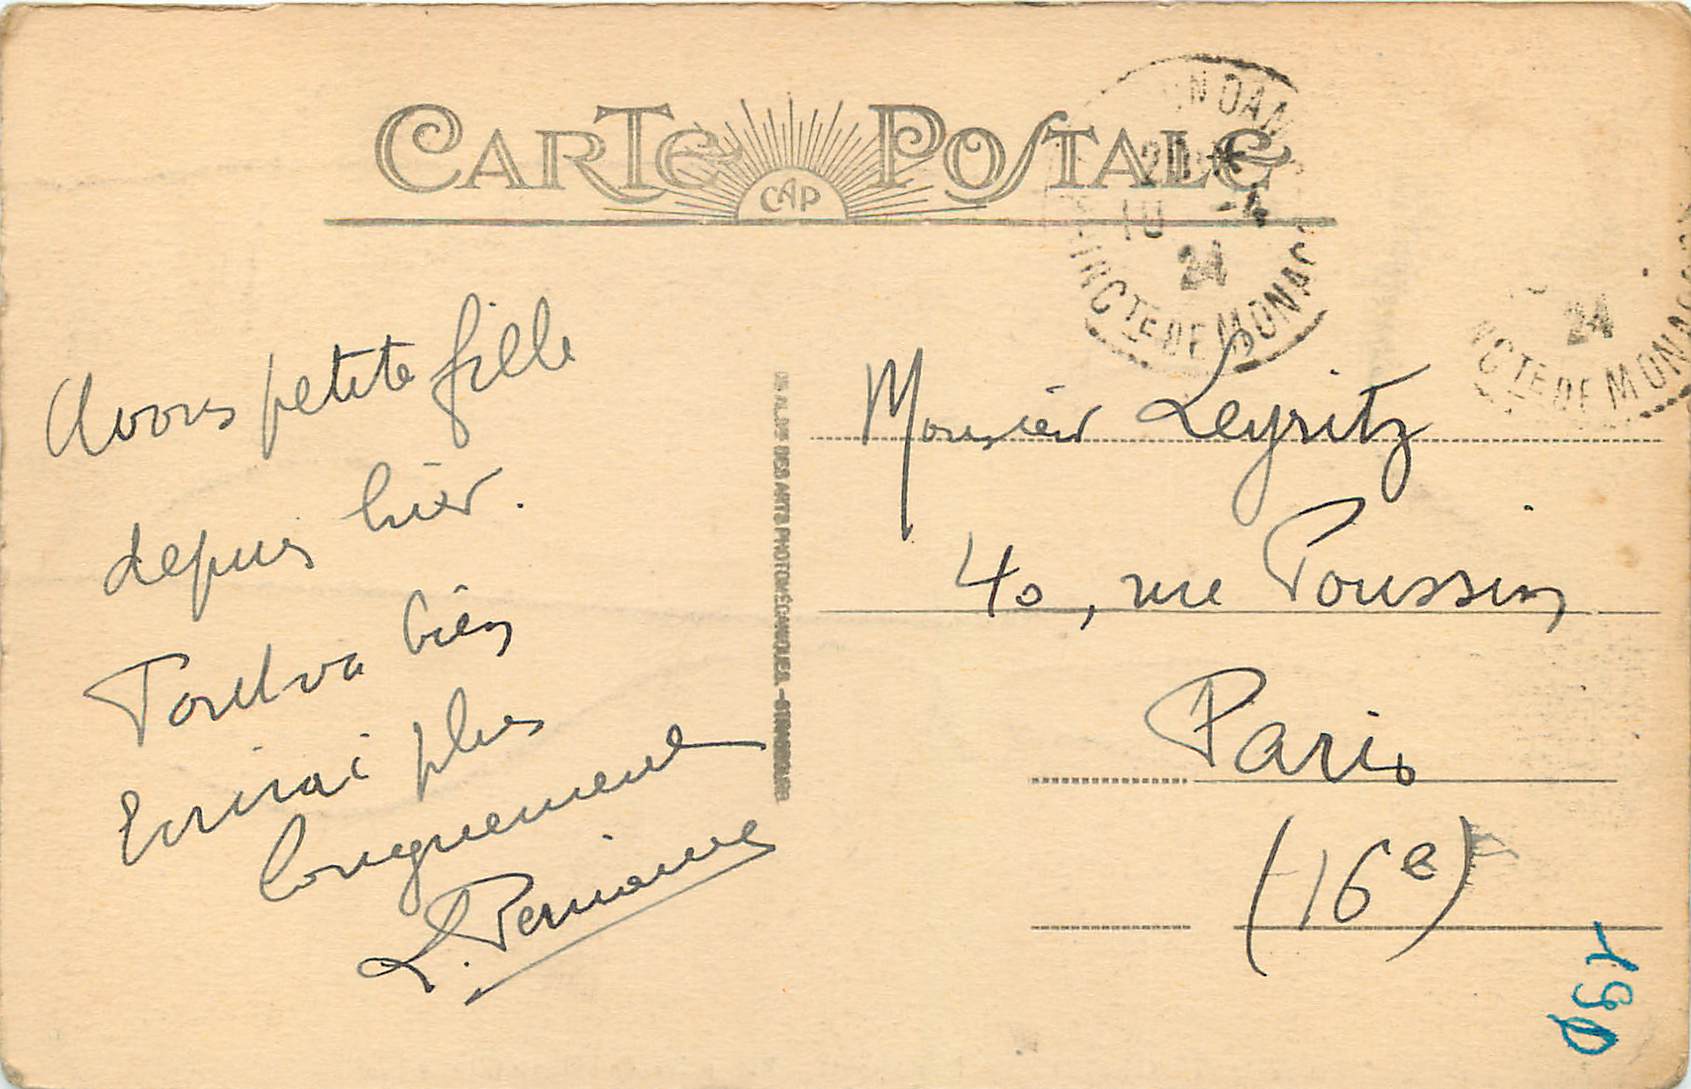 CARTE POSTALE
CAP
24
PRINCTE DE MONACO
24
NCTE DE MONACO
Avons petite fille
depuis hier.
Tout va bien
Ecrirai plus
longuement
L.
DES ARTS PHOTOMÉCANIQUES. - STRASBOURG
Monsieur Leyritz
40, rue Poussin
Paris
(16e)